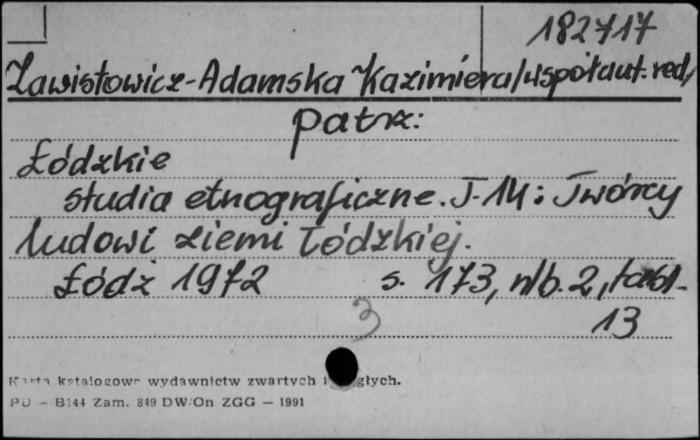 182717
Zawistowicz-Adamska Kazimiera/współaut. red/
patrz:
Łódzkie
studia etnograficzne. T. 14: Twórcy
ludowi ziemi łódzkiej.
Łódź 1972 s. 173, nlb. 2, tabl.
13
3
Karta katalogowa wydawnictw zwartych i ciągłych.
PU – B144 Zam. 849 DW/On ZGG – 1991